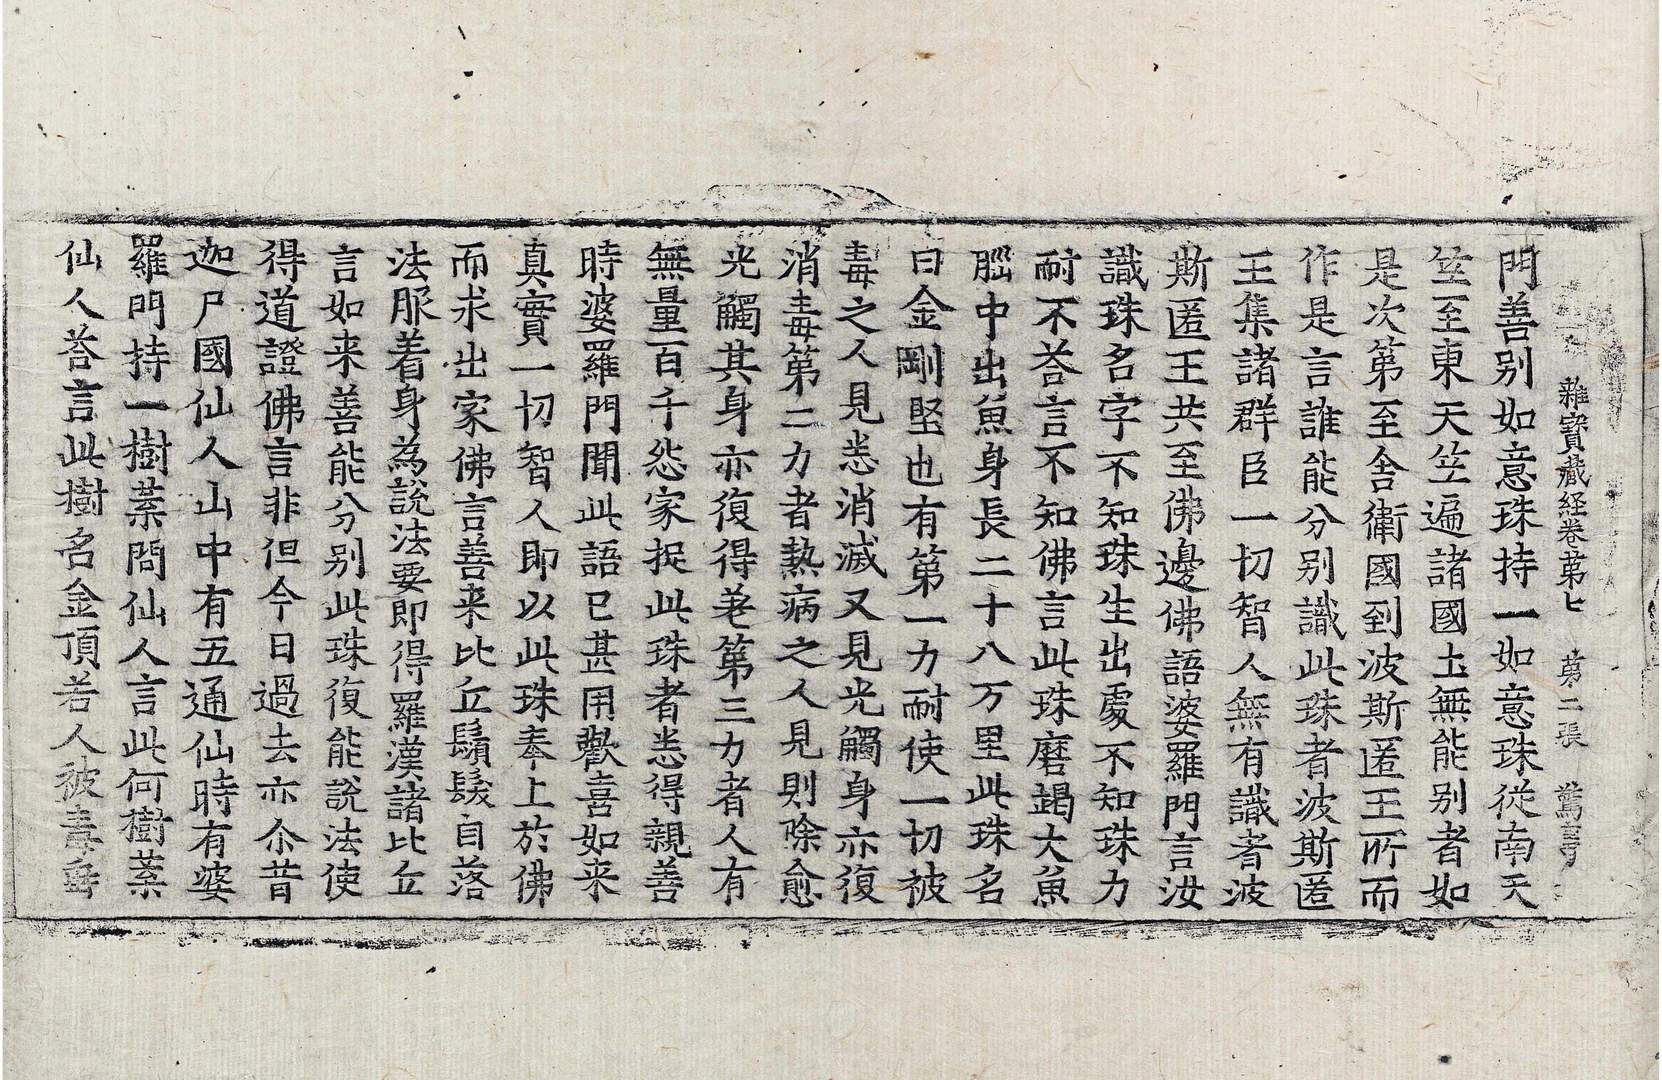 雜寳藏経卷苐七 苐二張 驚
門善别如意珠持一如意珠從南天
竺至東天竺遍諸國土無能别者如
是次第至舍衛國到波斯匿王所而
作是言誰能分别識此珠者波斯匿
王集諸群臣一切智人無有識者波
斯匿王共至佛邊佛語婆羅門言汝
識珠名字不知珠生出處不知珠力
耐不荅言不知佛言此珠磨竭大魚
腦中出魚身長二十八万里此珠名
曰金剛堅也有第一力耐使一切被
毒之人見悉消滅又見光觸身亦復
消毒第二力者熱病之人見則除愈
光觸其身亦復得差第三力者人有
無量百千怨家捉此珠者悉得親善
時婆羅門聞此語已甚用歡喜如来
真實一切智人即以此珠奉上於佛
而求出家佛言善来比丘鬚髮自落
法服着身為說法要即得羅漢諸比丘
言如来善能分别此珠復能說法使
得道證佛言非但今日過去亦尒昔
迦尸國仙人山中有五通仙時有婆
羅門持一樹葉問仙人言此何樹葉
仙人荅言此樹名金頂若人被毒垂